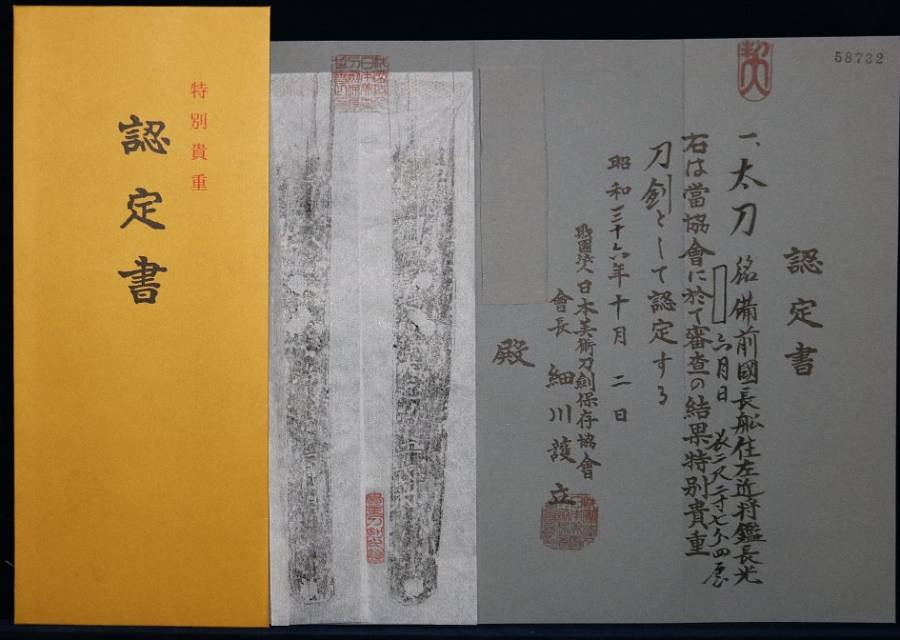 特別貴重
認定書
58732
認定書
一、太刀 銘 備前國長船住左近将鑑長光
六月日 長二尺二寸七分四厘
右は當協會に於て審査の結果特別貴重
刀剣として認定する
昭和三十六年十月二日
財團法人日本美術刀剣保存協會
會長 細川護立
殿